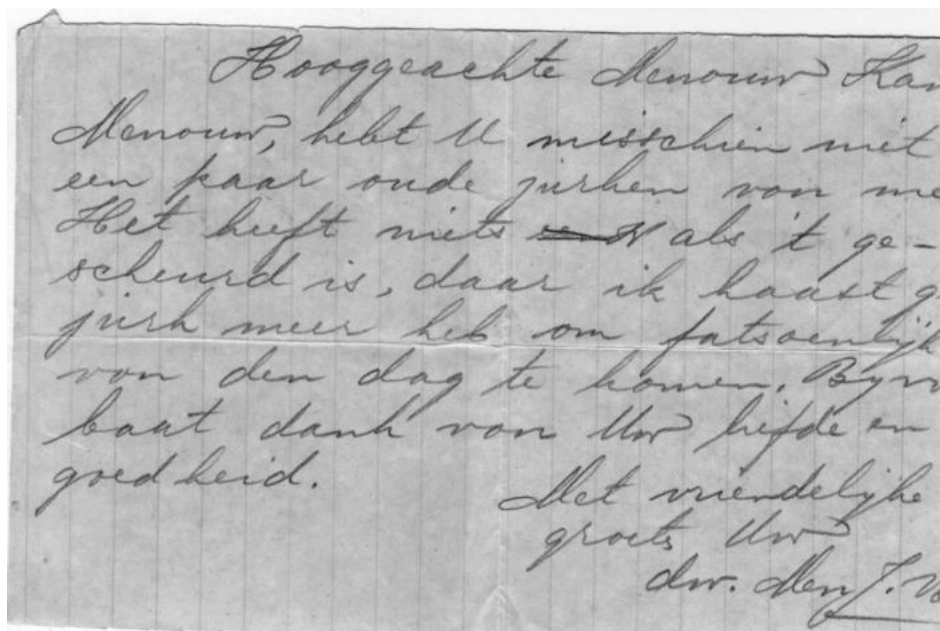 Hooggeachte Menouw Kan
Menouw, hebt U misschien niet
een paar oude jurken van me
Het heeft niets als 't ge-
scheurd is, daar ik haast g
jurk meer heb om fatsoenlijk
voor den dag te komen. By v
baat dank van Uw liefde en
goedheid.
Met vriendelijke
groets Uw
dw. Men J. V